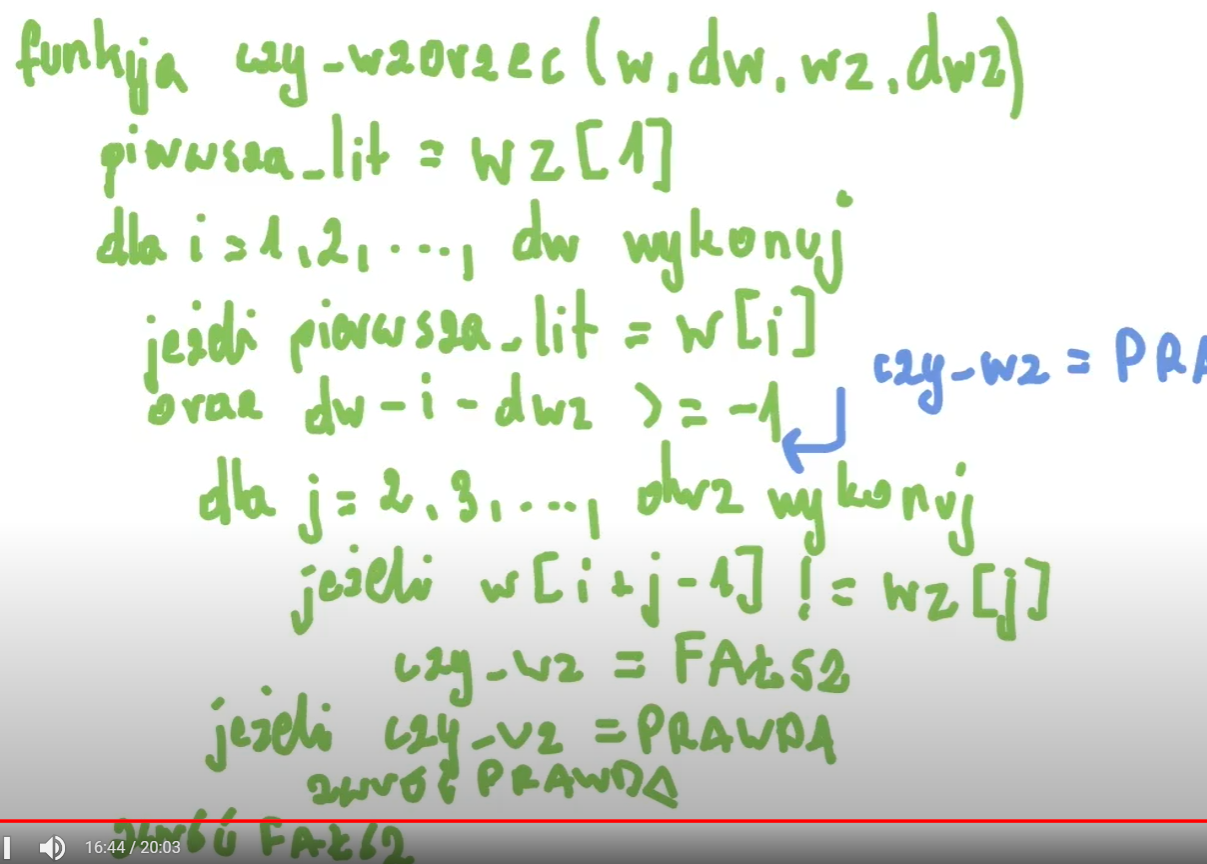 funkcja czy-wzorzec(w, dw, wz, dwz)
pierwsza_lit = wz[1]
dla i = 1, 2, ..., dw wykonuj
jeżeli pierwsza_lit = w[i]
czy-wz = PRA
oraz dw - i - dwz >= -1
dla j = 2, 3, ..., dwz wykonuj
jeżeli w[i+j-1] != wz[j]
czy-wz = FAŁSZ
jeżeli czy-wz = PRAWDA
zwróć PRAWDA
zwróć FAŁSZ
16:44 / 20:03